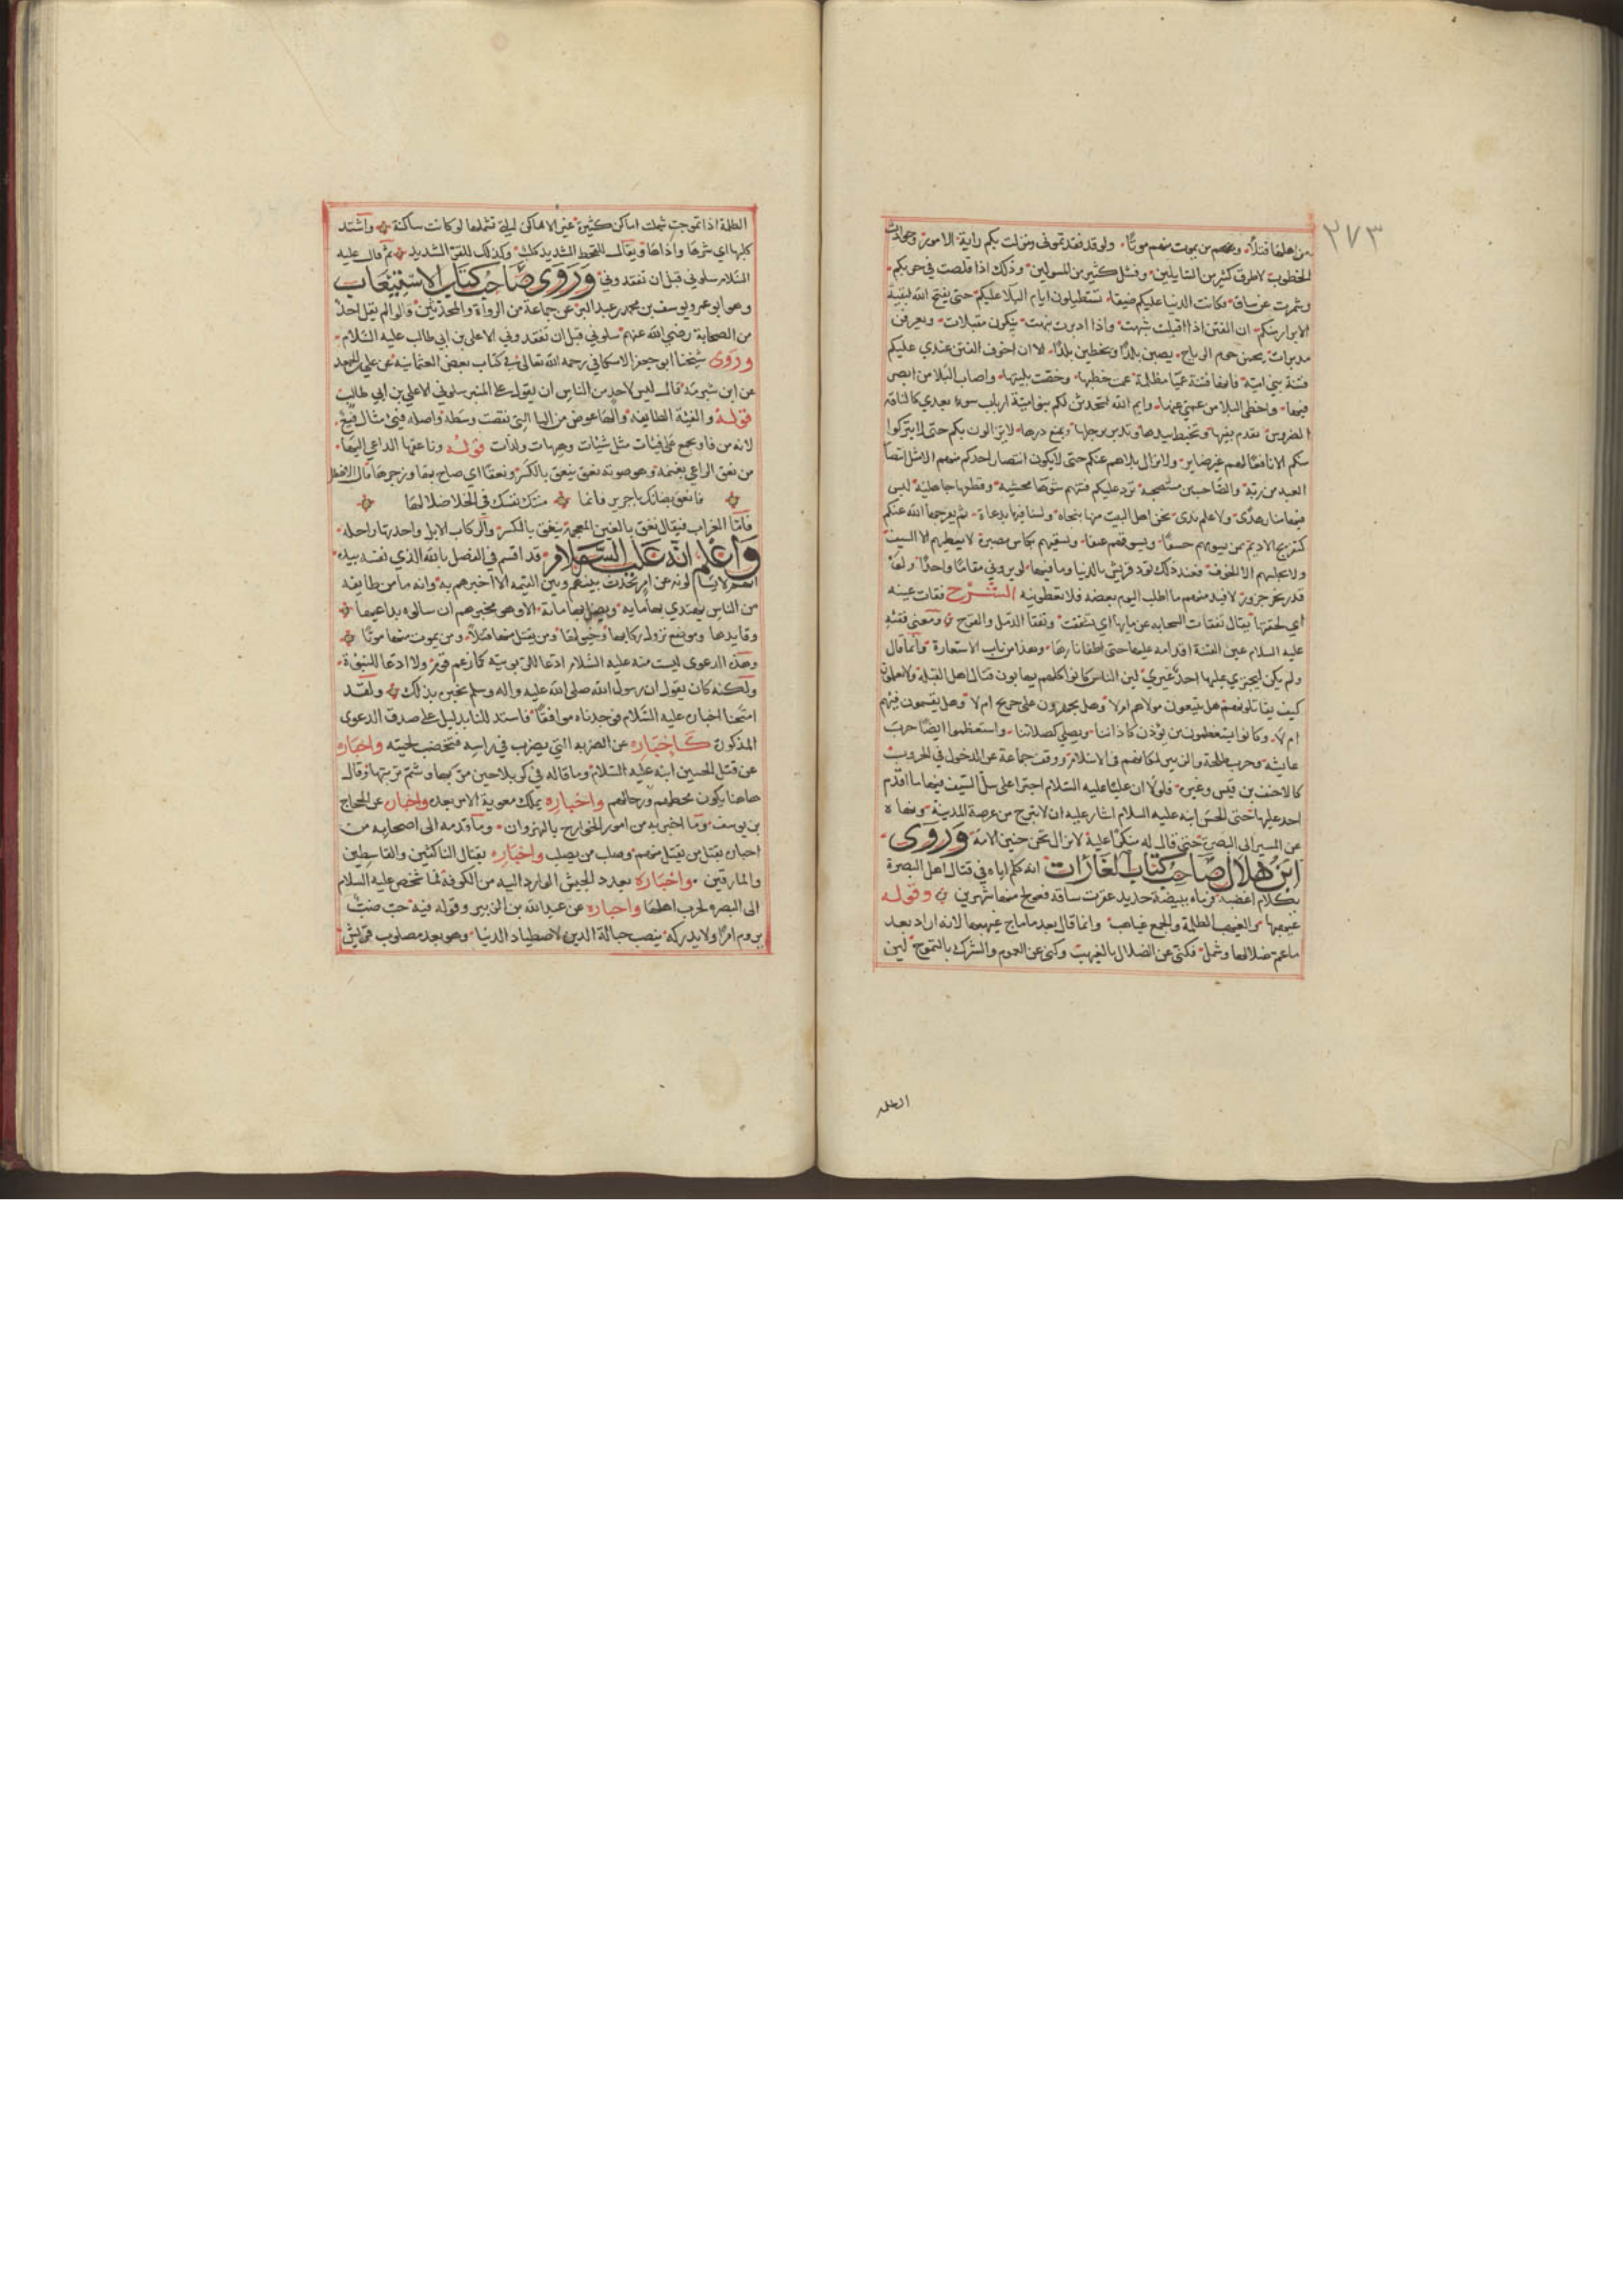 ٢٧٣
من اهلها قتلاً ومنهم من يموت منهم موتًا ولو قد فقدتموني ونزلت بكم راية الامور وحوادث
الخطوب لاطرق كثير من السايلين وفشل كثير من المسولين وذلك اذا قلصت في حربكم
وشمرت عن ساق وكانت الدنيا عليكم ضيقا تستطيلون ايام البلا عليكم حتى يفتح الله لبقية
الابرار منكم ان الفتن اذا اقبلت شبهت واذا ادبرت نبهت ينكرن مقبلات ويعرفن
مدبرات يحمن حوم الرياح يصبن بلدًا ويخطين بلدًا الا ان اخوف الفتن عندي عليكم
فتنة بني امية فانها فتنة عميا مظلمة عمت خطتها وخصت بليتها واصاب البلا من ابصر
فيها واخطى البلا من عمي عنها وايم الله لتجدن لكم بنو امية ارباب سوء بعدي كالناقة
الضروس تعذم بفيها وتخبط بيدها وتدبر برجلها وتمنع درها لا يزالون بكم حتى لا يتركوا
منكم الا نافعًا لهم غير ضاير ولا يزال بلاهم عنكم حتى لا يكون انتصار احدكم منهم الا مثل انتصا
العبد من ربه والصاحب من مستصحبه ترد عليكم فتنهم شوها مخشية وقطعها جاهلية ليس
فيها منار هدى ولا علم يرى نحن اهل البيت منها بنجاه ولسنا فيها بدعاة ثم يفرجها الله عنكم
كتفريج الاديم بمن يسومهم خسفًا ويسوقهم عنفا ويسقيهم بكاس مصبرة لا يعطيهم الا السيف
ولا يحلسهم الا الخوف فعند ذلك تود قريش بالدنيا وما فيها لو يروني مقامًا واحدًا ولو
قدر نحر جزور لاقبل منهم ما اطلب اليوم بعضه فلا يعطونيه الشرح فقات عينه
اي بخقتها يقال تفقات السحابه عن مايها اي تشققت وتفقا الدمل والقرح ومعنى فقئه
عليه السلام عين الفتنة اقدامه عليها حتى اطفا نارها وهذا من باب الاستعارة وانما قال
ولم يكن ليجتري عليها احد غيري لين الناس كانوا كلهم يهابون قتال اهل القبلة ولا يعلمون
كيف يقاتلونهم هل يتبعون مولاهم ام لا وهل يجهزون على جريح ام لا وهل يقسمون فيهم
ام لا وكانوا يستعظمون من يوذن كاذاننا ويصلي كصلاتنا واستعظموا ايضا حرب
عايشه وحرب طلحة والزبير لمكانهم في الاسلام ووقف جماعة عن الدخول في الحروب
كالاحنف بن قيس وغيره فلولا ان عليًا عليه السلام اجترا على سل السيف فيها ما اقدم
احد عليها حتى الحسن ابنه عليه السلام اشار عليه ان لا يبرح من عرصة المدينة ونهاه
عن المسير الى البصرة حتى قال له منكرًا عليه لا تزال تحن حنين الامة وروى
ابن هلال صاحب كتاب الغارات انه كلم اباه في قتال اهل البصرة
بكلام اغضبه فرماه ببيضة حديد عقرت ساقه فعولج منها شهرين وقوله
غيهبها والغيهب الظلمة والجمع غياهب وانما قال بعد ماماج غيهبها لانه اراد بعد
ما عم ضلالها وشمل فكنى عن الضلال بالغيهب وكنى عن العموم والشرك بالتموج لين
الظلمة
الظلمة اذا تموجت شملت اماكن كثيرة غير الاماكن التي تشملها لو كانت ساكنة واشتد
كلبها اي شرها واذاها ويقال للقحط الشديد كلب وكذلك للقر الشديد ثم قال عليه
السلام سلوني قبل ان تفقدوني وروى صاحب كتاب الاستيعاب
وهو ابو عمر ويوسف بن محمد بن عبد البر عن جماعة من الرواة والمحدثين قالوا لم يقل احد
من الصحابة رضي الله عنهم سلوني قبل ان تفقدوني الا علي بن ابي طالب عليه السلام
وروى شيخنا ابو جعفر الاسكافي رحمه الله تعالى في كتاب نقض العثمانيه عن علي بن الجعد
عن ابن شبرمة قال ليس لاحد من الناس ان يقول على المنبر سلوني الا علي بن ابي طالب
قوله والفئة الطايفه والها عوض من اليا التي نقصت وسطه واصله فيئ مثال فيع
لانه من فا ويجمع على فئات مثل شيات وهبات ولدات قوله وناعقها الداعي اليها
من نعق الراعي بغنمه وهو صوته نعق ينعق بالكسر ونعقا اي صاح بها وزجرها قال الاخطل
فانعق بضانك يا جرير فانما منتك نفسك في الخلا ضلالها
فاما الغراب فيقال نغق بالغين المعجمة ينغق بالكسر والركاب الابل واحدتها راحله
واعلم انه عليه السلام قد اقسم في الفصل بالله الذي نفسه بيده
انهم لا يسالونه عن امر يحدث بينهم وبين القيمه الا اخبرهم به وانه ما من طايفه
من الناس يهتدي بها مايه ويضل بها ماية الا وهو مخبرهم ان سالوه براعيها
وقايدها وموضع نزول ركابها وخيولها ومن يقتل منها قتلاً ومن يموت منها موتًا
وهذه الدعوى ليست منه عليه السلام ادعا للربوبيه كما زعم قوم ولا ادعا للنبوة
ولكنه كان يقول ان رسول الله صلى الله عليه واله وسلم يخبره بذلك ولقد
امتحنا اخباره عليه السلام فوجدناه موافقًا فاستدللنا بدليل على صدق الدعوى
المذكورة كاخباره عن الضربه التي يضرب في راسه فتخضب لحيته واخباره
عن قتل الحسين ابنه عليه السلام وما قاله في كربلا حين مر بها وشم تربتها وقال
هاهنا يكون محطهم ورحالهم واخباره بملك معوية الامر بعده واخباره عن الحجاج
بن يوسف وما اخبر به من امور الخوارج بالنهروان وما قدمه الى اصحابه من
اخباره بقتل من يقتل منهم وصلب من يصلب واخباره بقتال الناكثين والقاسطين
والمارقين واخباره بعدد الجيش الوارد اليه من الكوفة لما شخص عليه السلام
الى البصره لحرب اهلها واخباره عن عبد الله بن الزبير وقوله فيه خب ضب
يروم امرًا ولا يدركه ينصب حبالة الدين لاصطياد الدنيا وهو بعد مصلوب قريش